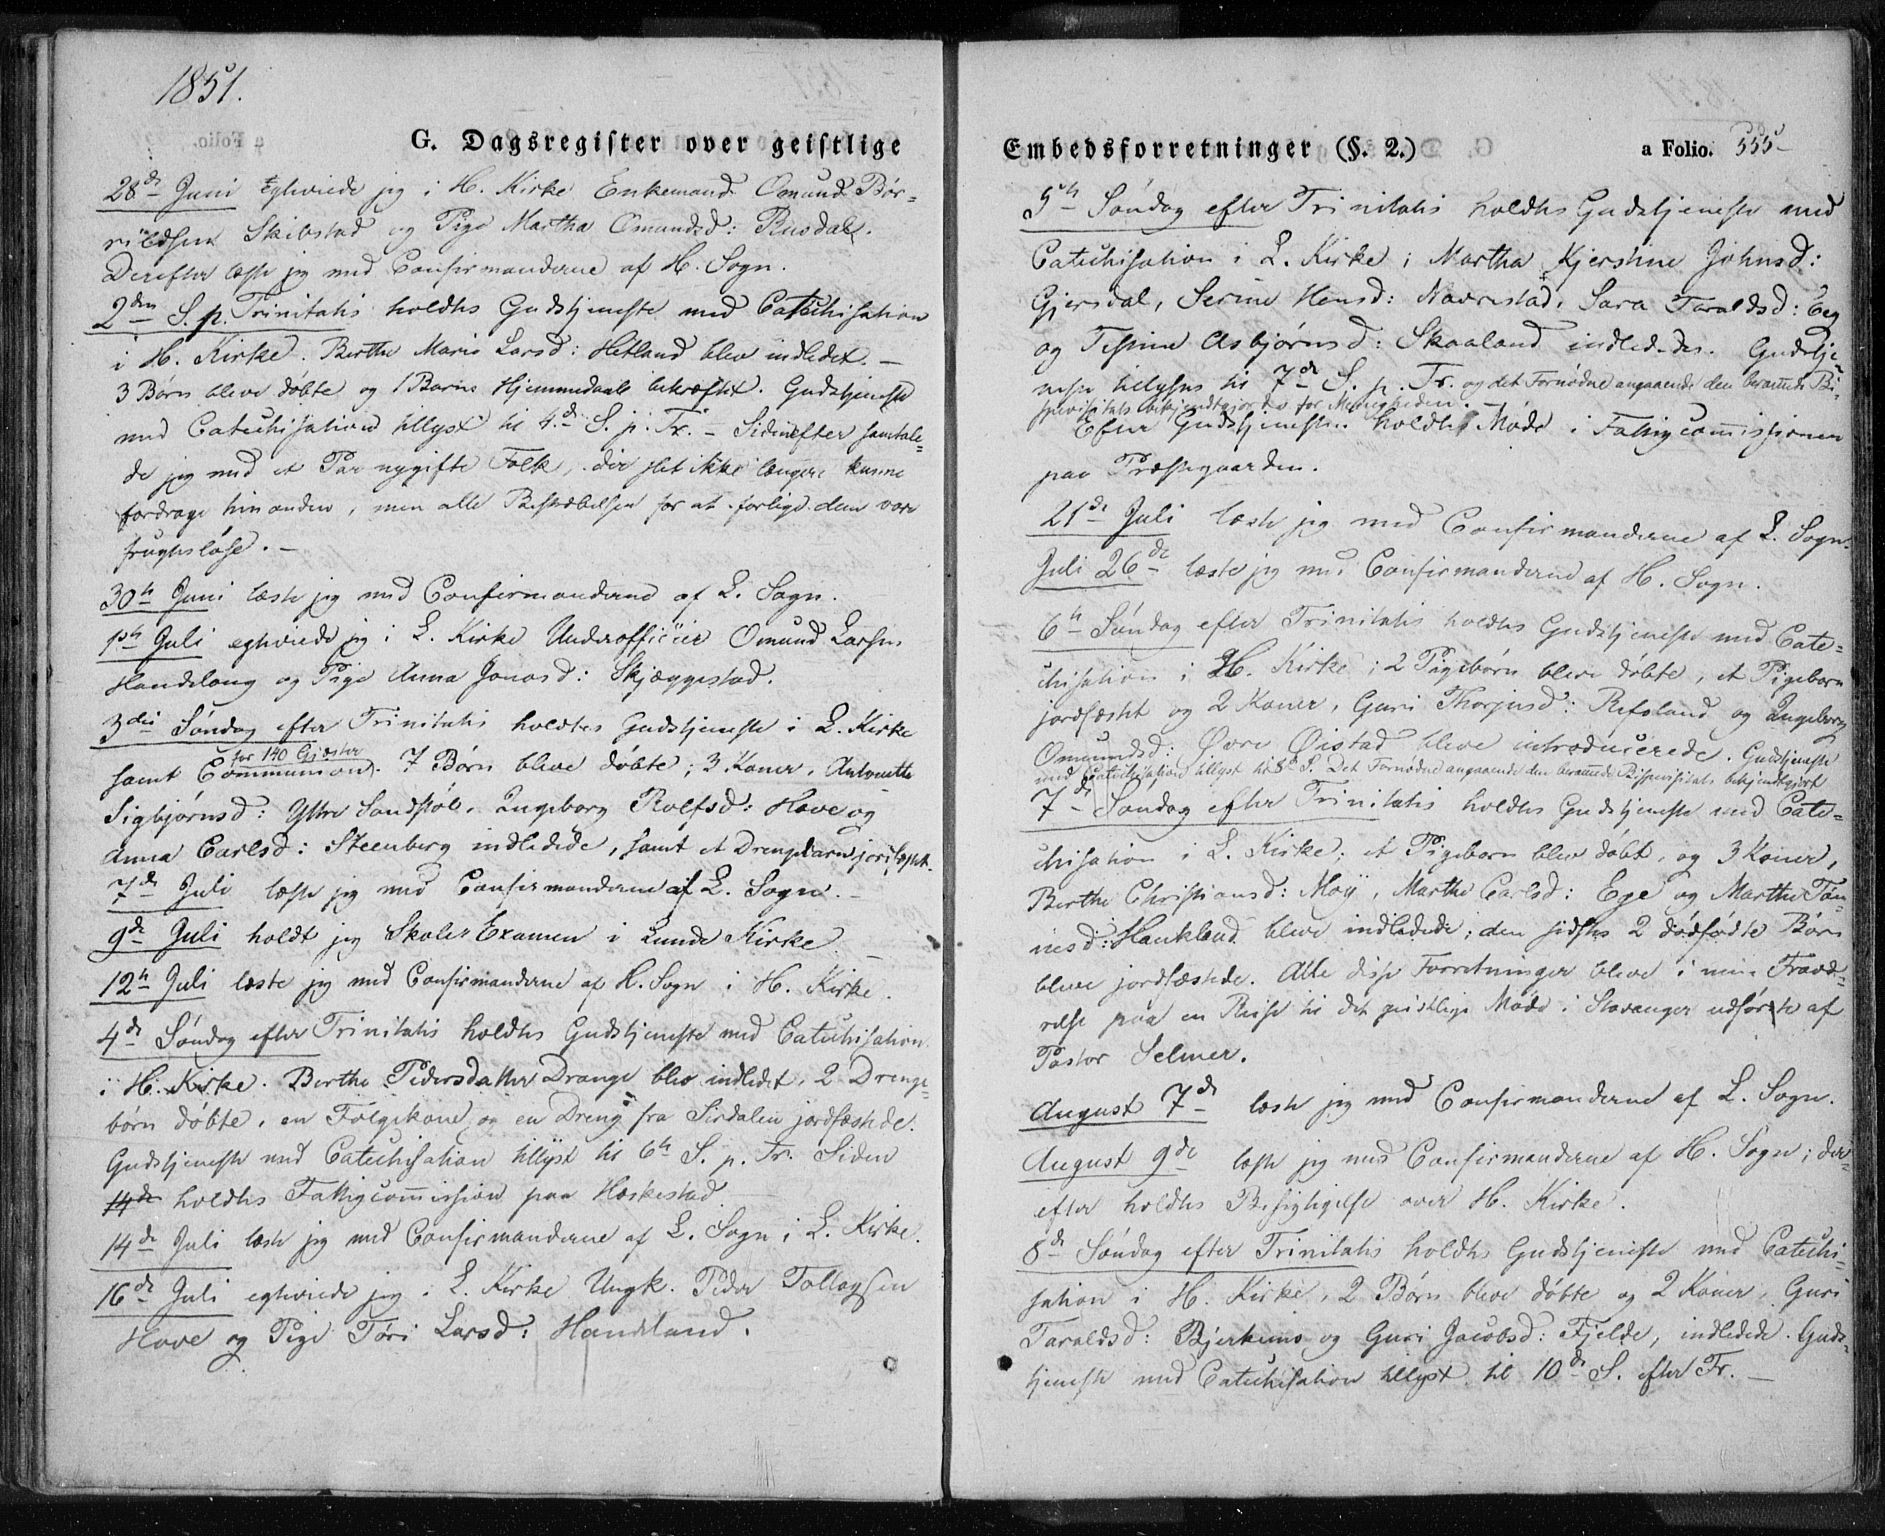 1851.
G. Dagsregister over geistlige
28de Juni Eghviede jeg i H. Kirke Enkemand Omund Bør-
rildsen Skibstad og Pige Martha Omundsd: Rusdal.
Derefter læste jeg med Confirmanderne af H. Sogn.
2den S. p. Trinitatis holdtes Gudstjeneste med Catechisation
i H. Kirke. Berthe Marie Larsd: Hetland blev indledet. –
3 Børn bleve døbte og 1 Barns Hjemmedaab bekræftet. Gudstjeneste
med Catechisation tillyst til 4de S. p. Tr. – Sidenefter samtale-
de jeg med et Par nygifte Folk, der slet ikke længere kunne
fordrage hinanden, men alle Bestræbelser for at forlige dem vare
frugtesløse. –
30te Juni læste jeg med Confirmanderne af L. Sogn.
1ste Juli eghviede jeg i L. Kirke Underofficier Omund Larsen
Handeland og Pige Anna Jonasd: Skjæggestad.
3die Søndag efter Trinitatis holdtes Gudstjeneste i L. Kirke
for 140 Gjæster
samt Communion. 7 Børn bleve døbte; 3 Koner, Antonette
Sigbjørnsd: Ytre Sandstøl, Ingeborg Rolfsd: Hove og
Anna Carlsd: Steenberg indledede, samt et Drengebarn jordfæstet.
7de Juli læste jeg med Confirmanderne af L. Sogn. –
9de Juli holdt jeg Skole-Examen i Lunde Kirke –
12te Juli læste jeg med Confirmanderne af H. Sogn i H. Kirke.
4de Søndag efter Trinitatis holdtes Gudstjeneste med Catechisation
i H. Kirke. Berthe Pedersdatter Drange blev indledet, 2 Drenge-
børn døbte, en Følgekone og en Dreng fra Sirdalen jordfæstede.
Gudstjeneste med Catechisation tillyst til 6te S. p. Tr. Siden
14de holdtes Fattigcommission paa Hæskestad
14de Juli læste jeg med Confirmanderne af L. Sogn i L. Kirke.
16de Juli eghviede jeg i L. Kirke Ungk. Peder Tollagsen
Hove og Pige Tøri Larsd: Handeland.
Embedsforretninger (§. 2.) a Folio. 555
5te Søndag efter Trinitatis holdtes Gudstjeneste med
Catechisation i L. Kirke; Martha Kjerstine Johnsd:
Gjersdal, Serine Hensd: Navrestad, Sara Taraldsd: Eeg
og Tesine Asbjørnsd: Skaaland indledede. Gudstje-
neste tillyses til 7de S. p. Tr. og det Fornødne angaaende den berammede Bi-
spevisitats bekjendtgjordes for Menigheden. –
Efter Gudstjenesten holdtes Møde i Fattigcommissionen
paa Præstegaarden.
21de Juli læste jeg med Confirmanderne af L. Sogn.
Juli 26de læste jeg med Confirmanderne af H. Sogn.
6te Søndag efter Trinitatis holdtes Gudstjeneste med Cate-
chisation i H. Kirke; 2 Pigebørn bleve døbte, et Pigebarn
jordfæstet og 2 Koner, Guri Thorjusd: Refsland og Ingeborg
Omundsd: Øvre Øistad bleve introducerede. Gudstjeneste
med Catechisation tillyst til 8de S. Det Fornødne angaaende den berammede Bispevisitats bekjendtgjort
7de Søndag efter Trinitatis holdtes Gudstjeneste med Cate-
chisation i L. Kirke; et Pigebarn blev døbt, og 3 Koner,
Berthe Christiansd: Moij, Marthe Carlsd: Ege og Marthe Tøn-
nesd: Haukland bleve indledede; den sidstes 2 dødfødte Børn
bleve jordfæstede. Alle disse Forretninger bleve i min Fravæ-
relse paa en Reise til det geistlige Møde i Stavanger udførte af
Pastor Selmer.
August 7de læste jeg med Confirmanderne af L. Sogn.
August 9de læste jeg med Confirmanderne af H. Sogn; der-
efter holdtes Besigtigelse over H. Kirke.
8de Søndag efter Trinitatis holdtes Gudstjeneste med Catechi-
sation i H. Kirke, 2 Børn bleve døbte og 2 Koner, Guri
Taraldsd: Bjerkumo og Guri Jacobsd: Fjelde, indledede. Guds-
tjeneste med Catechisation tillyst til 10de S. efter Tr. –